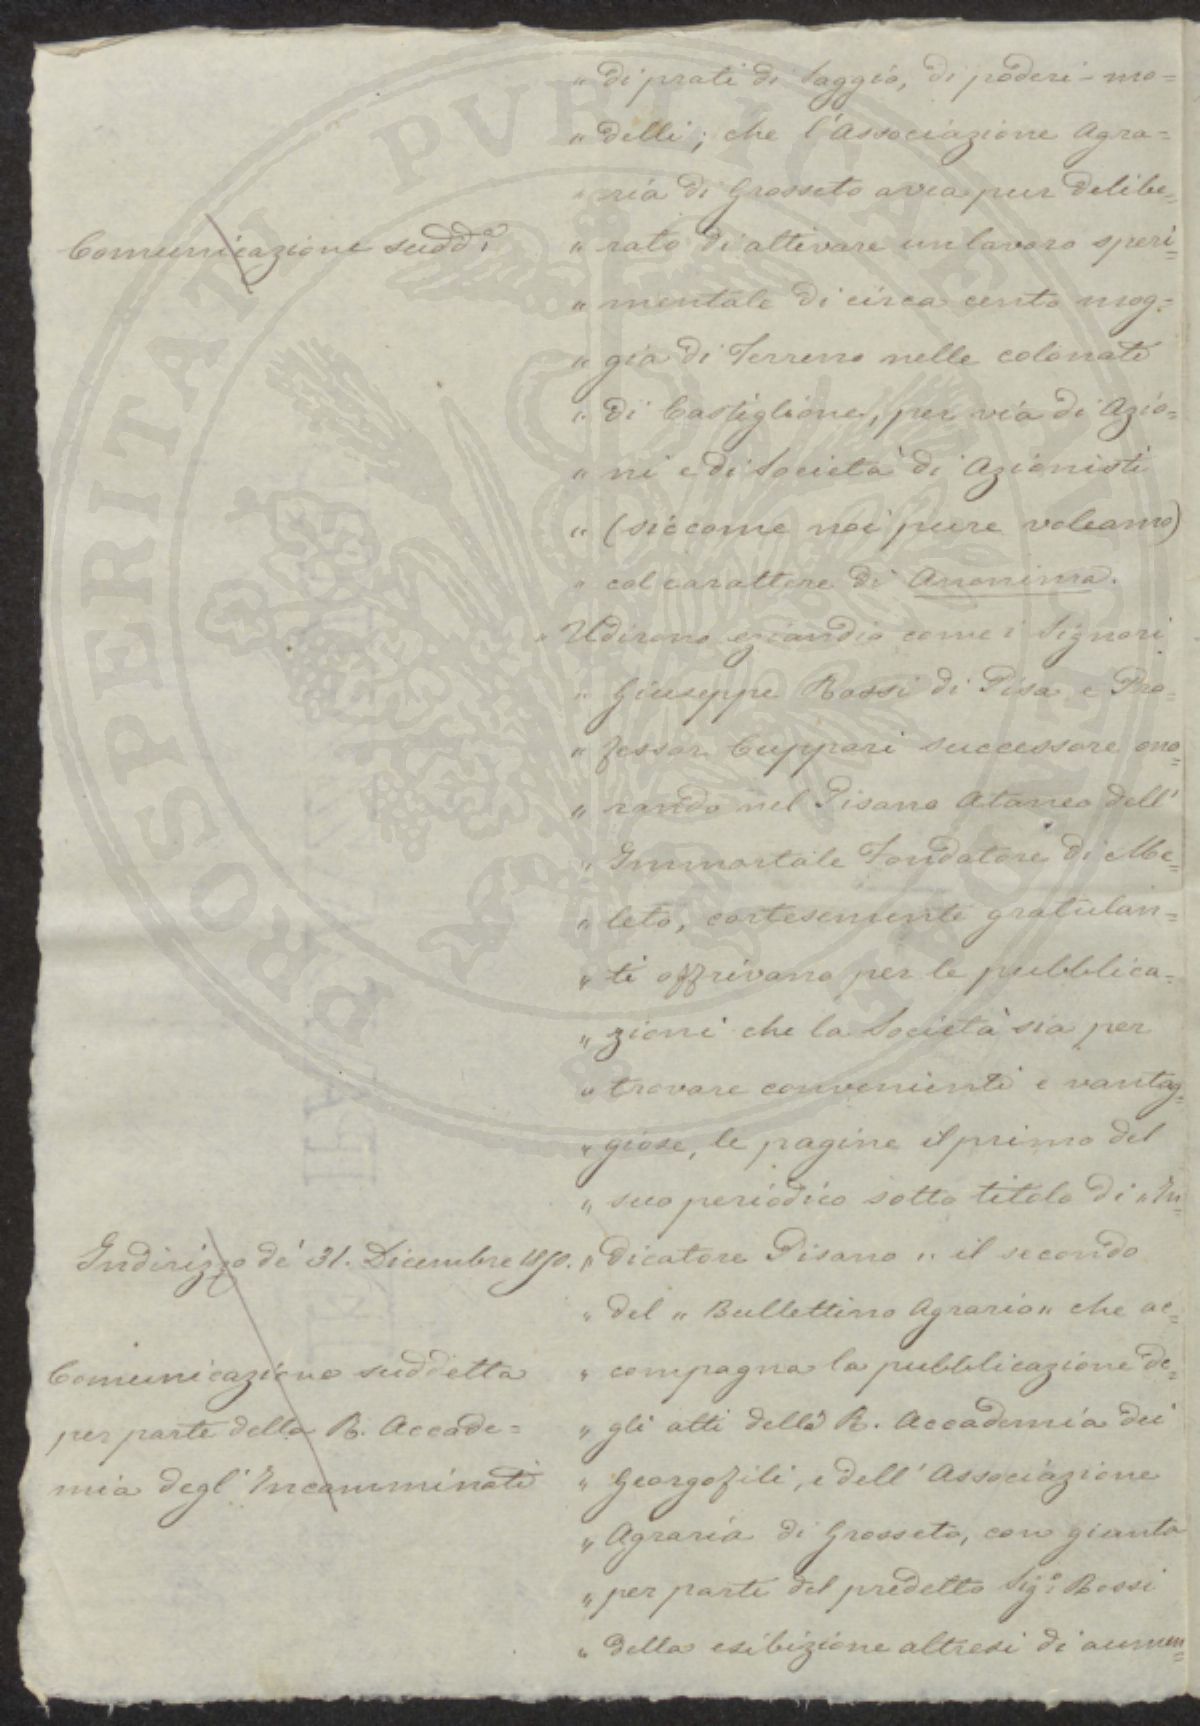 „ di prati di saggio, di poderi-mo=
„ delli; che l'Associazione Agra=
„ ria di Grosseto avea pur delibe=
Comunicazione sudd.ª
„ rato di attivare un lavoro speri=
„ mentale di circa cento mog=
„ gia di Terreno nelle colonate
„ di Castiglione, per via di Azio=
„ ni e di Società di Azionisti
„ (siccome noi pure voleamo)
„ col carattere di Anonima.
„ Udirono eziandio come i Signori
„ Giuseppe Rossi di Pisa e Pro=
„ fessor Cuppari successore ono=
„ rando nel Pisano Ateneo dell'
„ Immortale Fondatore di Me=
„ leto, cortesemente gratulan=
„ ti offrivano per le pubblica=
„ zioni che la Società sia per
„ trovare convenienti e vantag=
„ giose, le pagine il primo del
„ suo periodico sotto titolo di „ In=
Indirizzo de' 31. Dicembre 1850.
„ dicatore Pisano „ il secondo
„ del „ Bullettino Agrario „ che ac=
Comunicazione suddetta
per parte della R. Accade=
mia degl'Incamminati
„ compagna la pubblicazione de=
„ gli atti della R. Accademia dei
„ Georgofili, e dell'Associazione
„ Agraria di Grosseto, con giunta
„ per parte del predetto Sig.e Rossi
„ della esibizione altresì di aumen=
PROSPERITATI PVBLICAE AVGENDAE